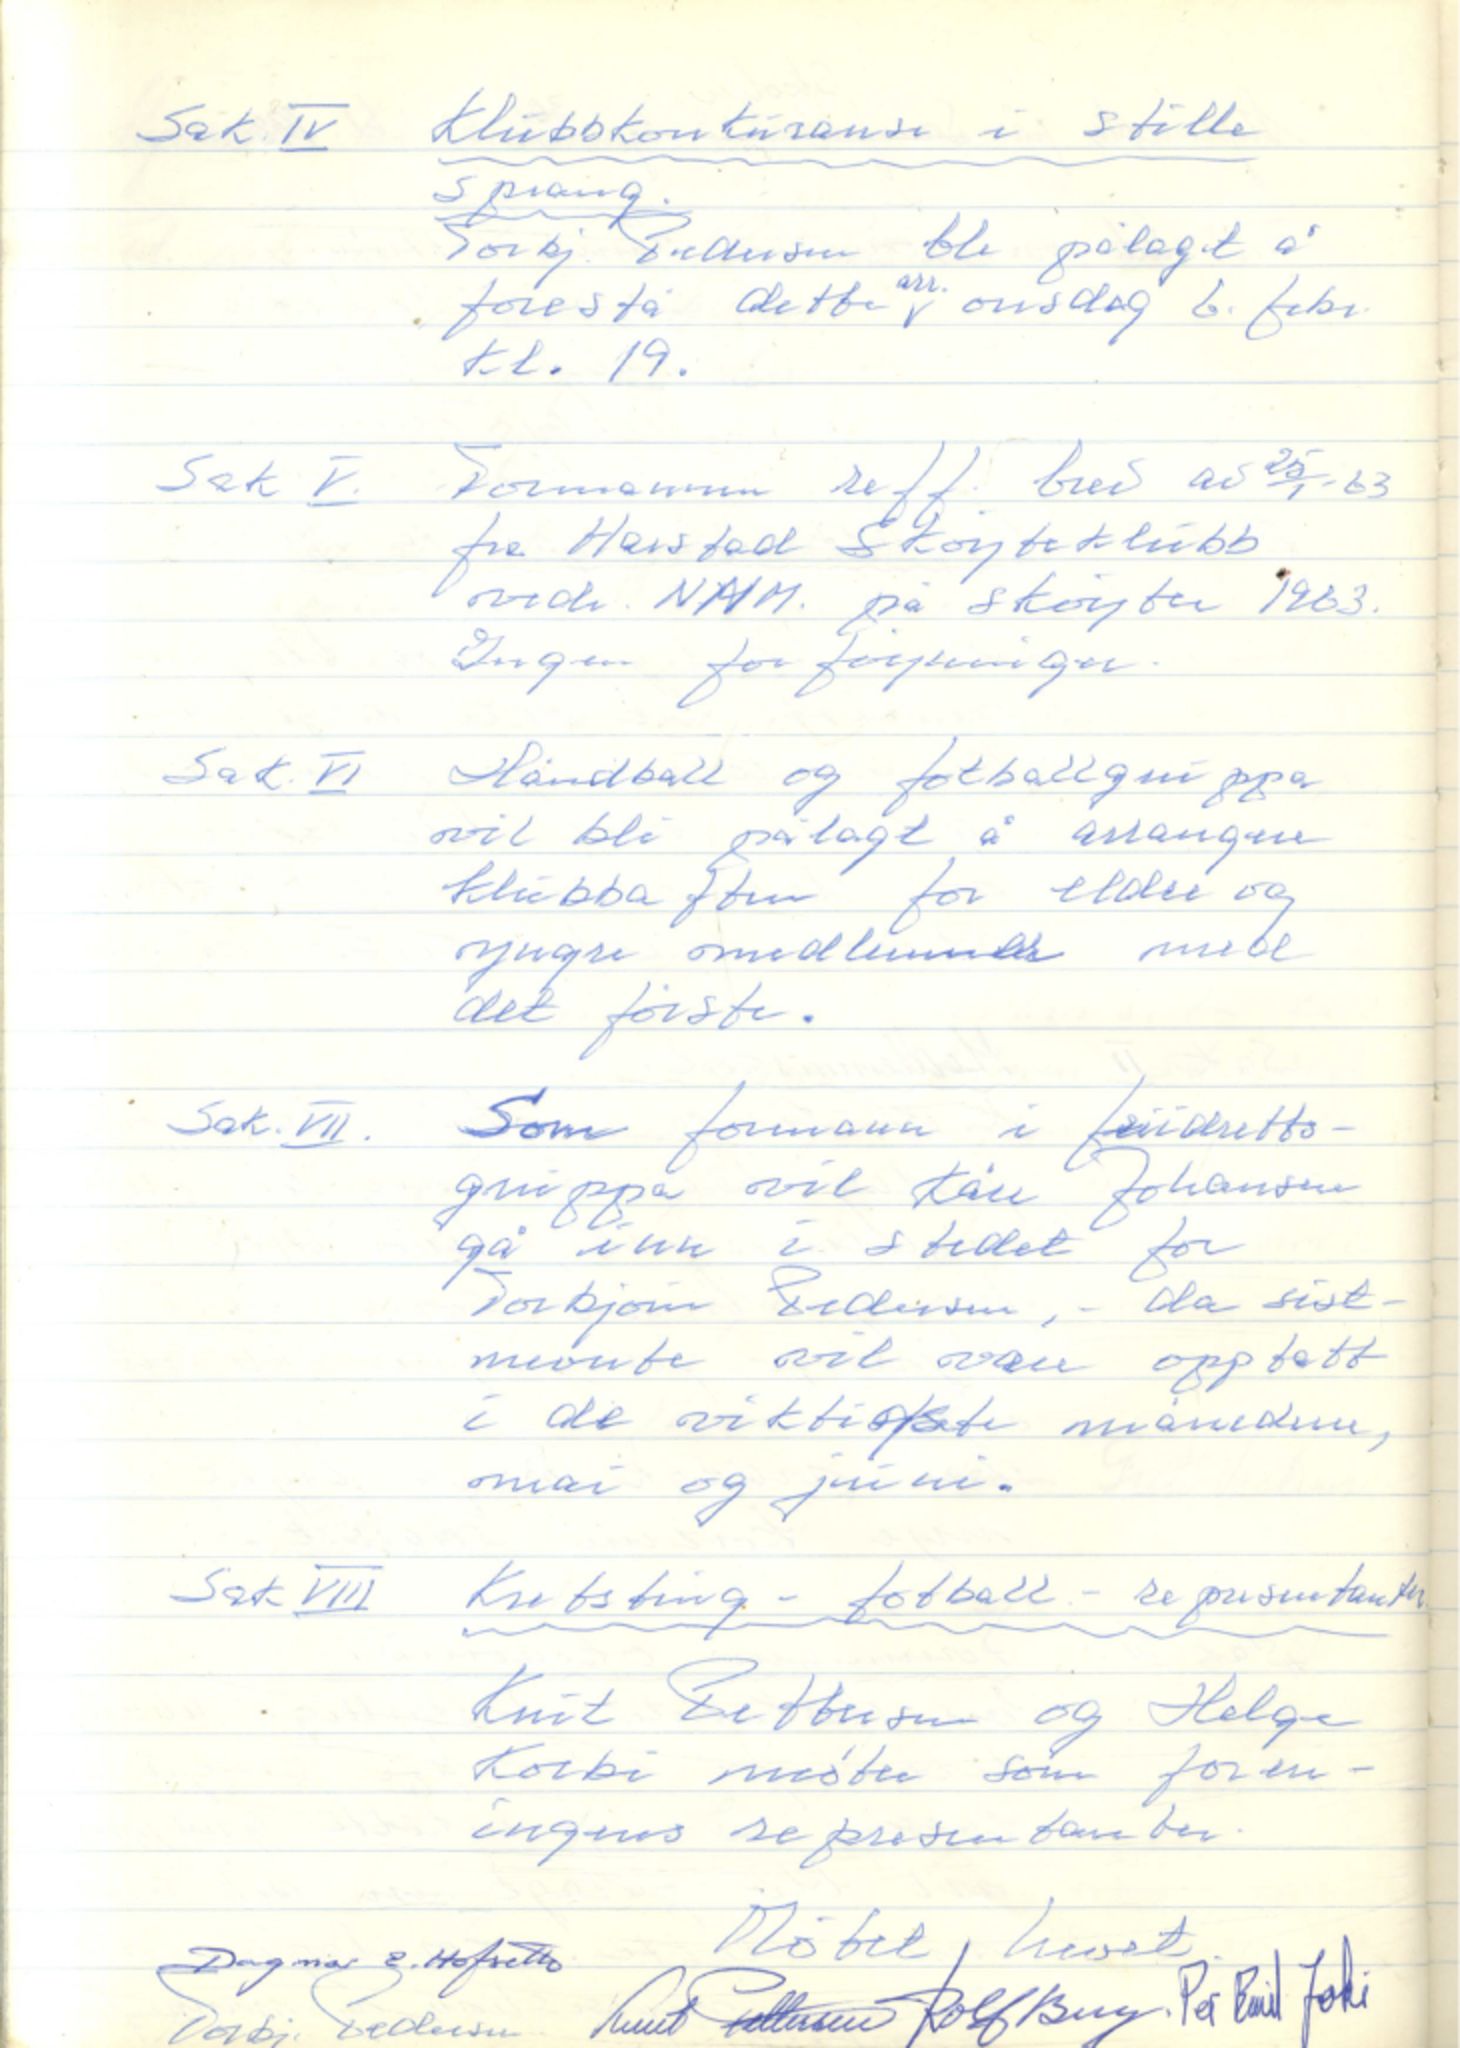 Sak. IV Klubbkonkuranse i stille
sprang.
Torbj. Pedersen ble pålagt å
forestå dette arr. onsdag 6. febr.
kl. 19.
Sak V. Formannen reff. brev av 25/1-63
fra Harstad Skøyteklubb
vedr. NNM. på skøyter 1963.
Ingen forføyninger.
Sak. VI Håndball og fotballgruppa
vil bli pålagt å arrangere
klubbaften for eldre og
yngre medlemmer med
det første.
Sak. VII. Som formann i friidretts-
gruppa vil Kåre Johansen
gå inn i stedet for
Torbjørn Pedersen, - da sist-
nevnte vil være opptatt
i de viktigste månedene,
mai og juni.
Sak VIII Kretsting - fotball - representanter.
Knut Pettersen og Helge
Korbi møter som foren-
ingens representanter.
Møtet hevet.
Dagmar E. Hofsetto
Torbj. Pedersen Knut Pettersen Rolf Berg. Per Emil Joki